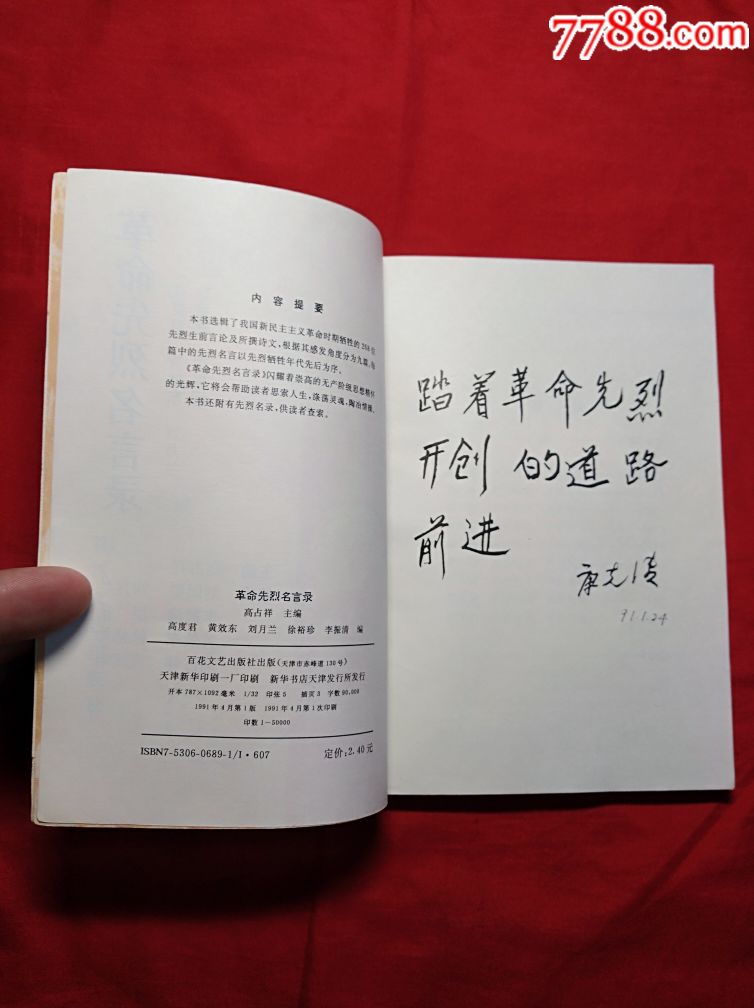 7788.com
内容提要
本书选辑了我国新民主主义革命时期牺牲的
先烈生前言论及所撰诗文，根据其感发角度分为九篇，
篇中的先烈名言以先烈牺牲年代先后为序。
《革命先烈名言录》闪耀着崇高的无产阶级思想
的光辉，它将会帮助读者思索人生，涤荡灵魂，陶冶情操。
本书还附有先烈名录，供读者查索。
革命先烈名言录
高占祥 主编
高度君 黄效东 刘月兰 徐裕珍 李振清 编
百花文艺出版社出版（天津市赤峰道130号）
天津新华印刷一厂印刷 新华书店天津发行所发行
开本787×1092毫米 1/32 印张5 插页3 字数90,000
1991年4月第1版 1991年4月第1次印刷
印数1—50000
ISBN7-5306-0689-1/I·607 定价：2.40元
踏着革命先烈
开创的道路
前进
康克清
91.1.24
革命先烈名言录